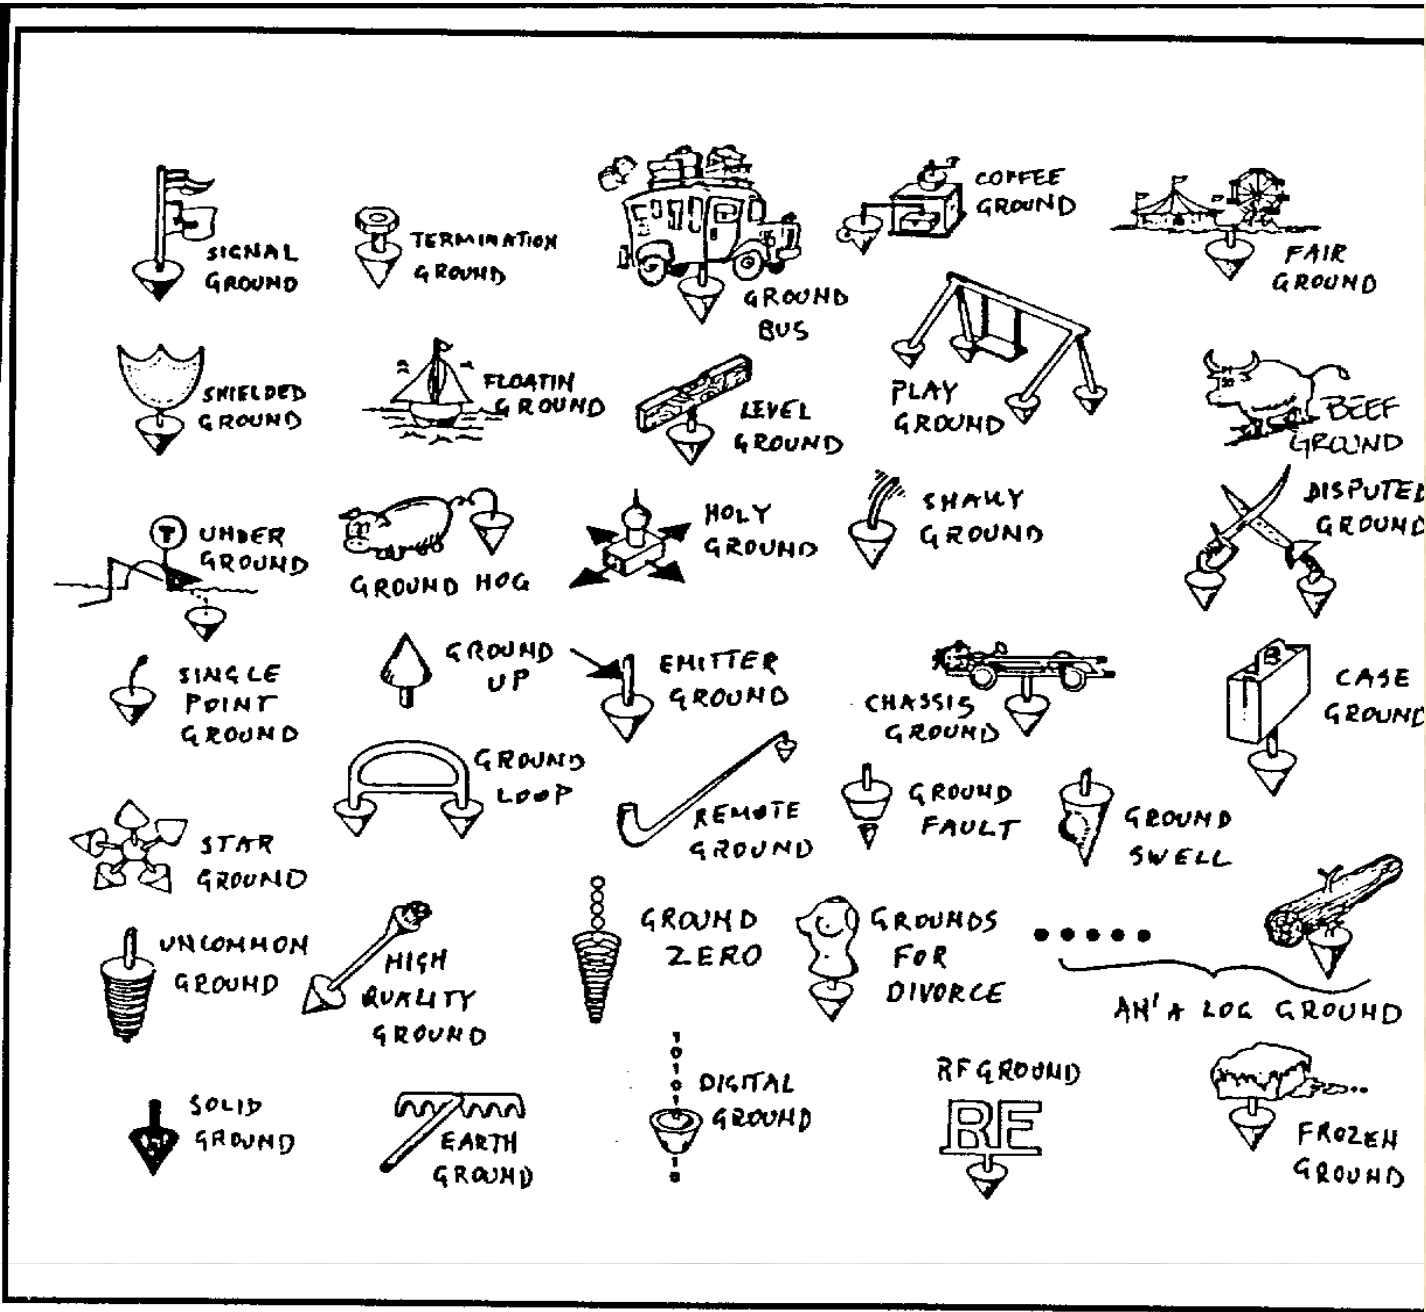 SIGNAL
GROUND
TERMINATION
GROUND
GROUND
BUS
COFFEE
GROUND
FAIR
GROUND
SHIELDED
GROUND
FLOATIN
GROUND
LEVEL
GROUND
PLAY
GROUND
BEEF
GROUND
T
UNDER
GROUND
GROUND HOG
HOLY
GROUND
SHAKY
GROUND
DISPUTED
GROUND
SINGLE
POINT
GROUND
GROUND
UP
EMITTER
GROUND
CHASSIS
GROUND
CASE
GROUND
GROUND
LOOP
REMOTE
GROUND
GROUND
FAULT
GROUND
SWELL
STAR
GROUND
UNCOMMON
GROUND
HIGH
QUALITY
GROUND
GROUND
ZERO
GROUNDS
FOR
DIVORCE
AN' A LOG GROUND
SOLID
GROUND
EARTH
GROUND
DIGITAL
GROUND
RF GROUND
RF
FROZEN
GROUND